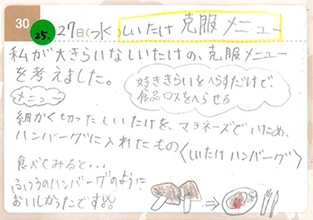 30
25. 27日(水) しいたけ 克服メニュー
私が大きらいなしいたけの、克服メニュー
を考えました。
好ききらいをへらすだけで、
食品ロスをへらせる
メニュー
細かく切ったしいたけを、マヨネーズでいため、
ハンバーグに入れたもの
〈しいたけハンバーグ〉
食べてみると・・・
ふつうのハンバーグのように
おいしかったです